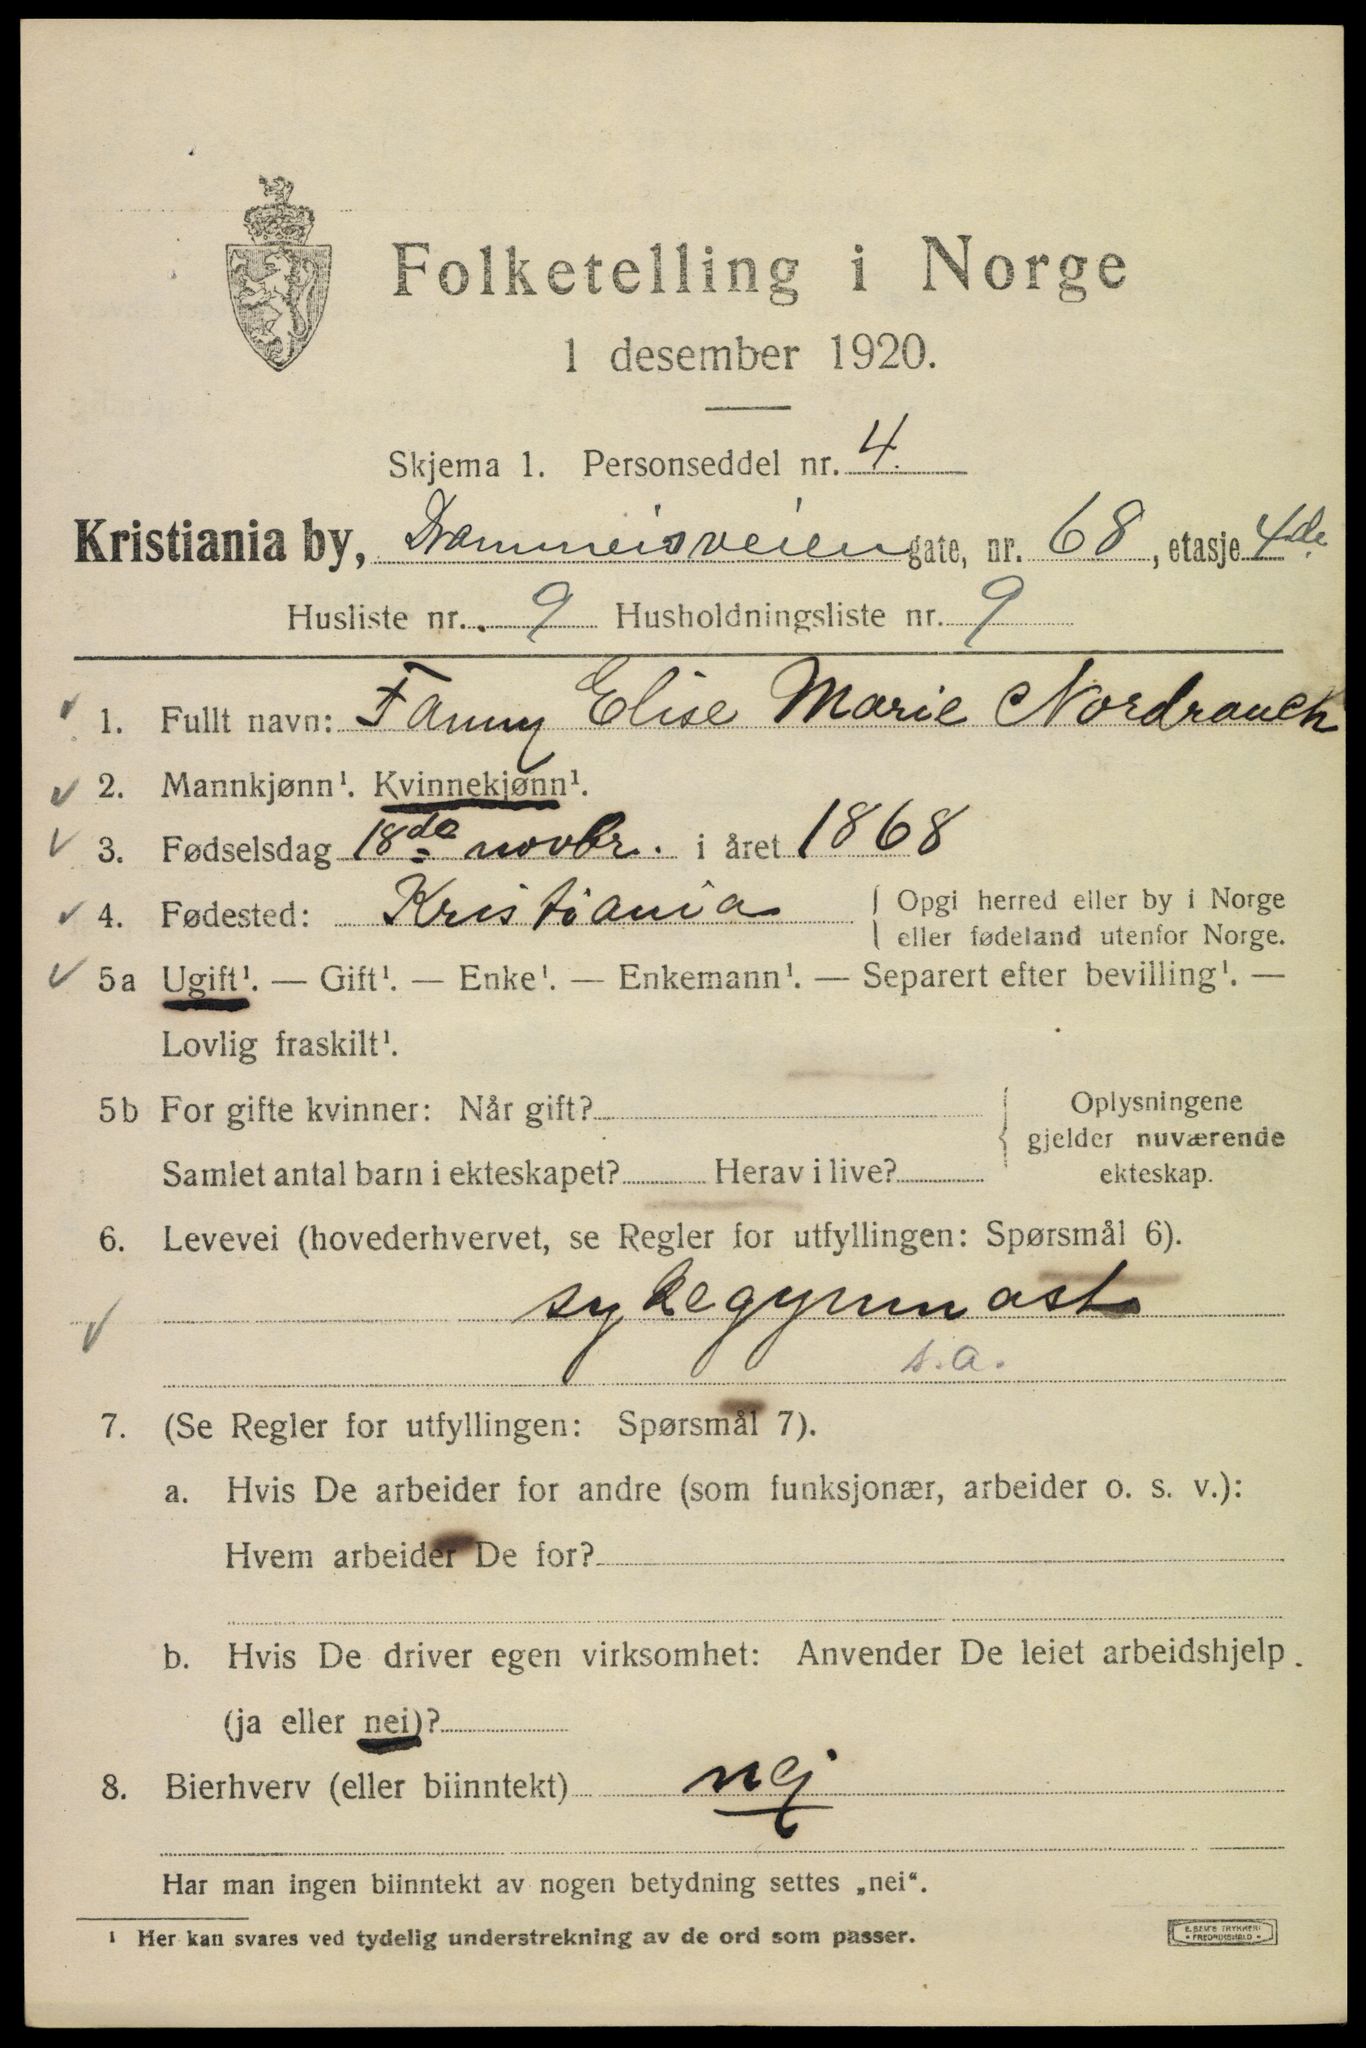 Folketelling i Norge
1 desember 1920.
Skjema 1. Personseddel nr. 4.
Kristiania by, Drammensveien gate, nr. 68, etasje 4de.
Husliste nr. 9 Husholdningsliste nr. 9
1. Fullt navn: Fanny Elise Marie Nordraach
2. Mannkjønn¹. Kvinnekjønn¹.
3. Fødselsdag 18de novbr. i året 1868
4. Fødested: Kristiania { Opgi herred eller by i Norge
eller fødeland utenfor Norge.
5a Ugift¹. — Gift¹. — Enke¹. — Enkemann¹. — Separert efter bevilling¹. —
Lovlig fraskilt¹.
5b For gifte kvinner: Når gift? { Oplysningene
gjelder nuværende
Samlet antal barn i ekteskapet? Herav i live? ekteskap.
6. Levevei (hovederhvervet, se Regler for utfyllingen: Spørsmål 6).
sykegymnast
s.a.
7. (Se Regler for utfyllingen: Spørsmål 7).
a. Hvis De arbeider for andre (som funksjonær, arbeider o. s. v.):
Hvem arbeider De for?
b. Hvis De driver egen virksomhet: Anvender De leiet arbeidshjelp
(ja eller nei)?
8. Bierhverv (eller biinntekt) nej
Har man ingen biinntekt av nogen betydning settes „nei“.
¹ Her kan svares ved tydelig understrekning av de ord som passer.
E. SEM'S TRYKKERI
FREDRIKSHALD